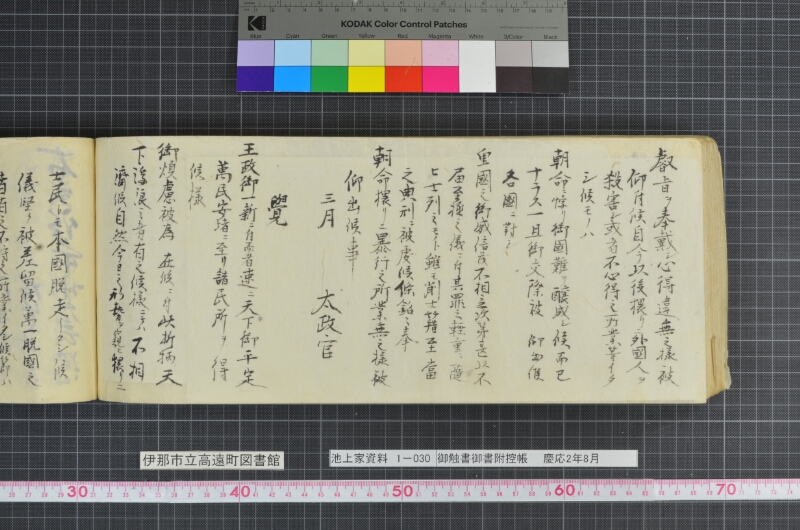 KODAK Color Control Patches
Blue Cyan Green Yellow Red Magenta White 3/Color Black
叡旨ヲ奉戴シ心得違無之様被
仰付候自今以後猥リニ外國人ヲ
殺害シ或者不心得之所業等イタ
シ候モノハ
朝命ニ悖リ御國難ヲ醸成シ候而已
ナラス一旦御交際被 仰出候
各國ニ對シ
皇國之御威信モ不相立次第甚以不
届至極之儀ニ付其罪之輕重ニ隨
ヒ士列之モノト雖モ削士籍至當
之典刑ニ被處候條銘々奉
朝命猥リニ暴行之所業無之様被
仰出候事
三月 太政官
覺
王政御一新ニ付而者速ニ天下御平定
萬民安堵ニ至リ諸民所ヲ得
候様
御煩慮被為 在候ニ付此折柄天
下浮浪之者有之候様ニテハ不相
濟候自然今日之形勢ヲ窺ヒ猥リニ
士民トモ本國脱走イタシ候
儀堅ク被差留候萬一脱國之
者有之不埒之所業イタシ候節ハ
伊那市立高遠町図書館
池上家資料 1-030 御触書御書附控帳 慶応2年8月
30 40 50 60 70